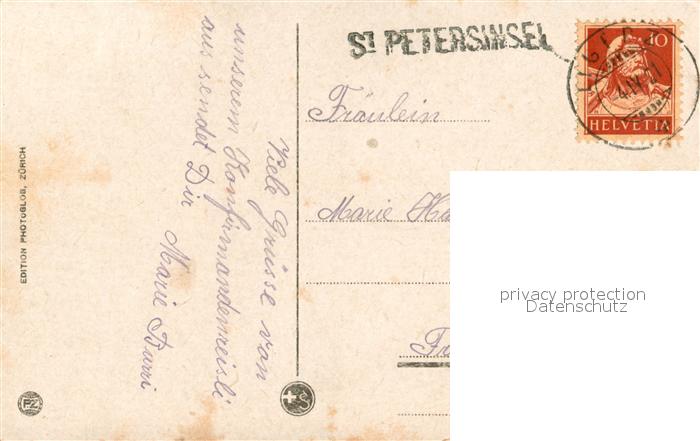 ST PETERSINSEL
10
HELVETIA
Fräulein
Marie Ha
Fr
privacy protection
Datenschutz
Viele Grüsse von
unserem Konfirmandenreisli
aus sendet Dir
Marie Burri
EDITION PHOTOGLOB, ZÜRICH
PZ